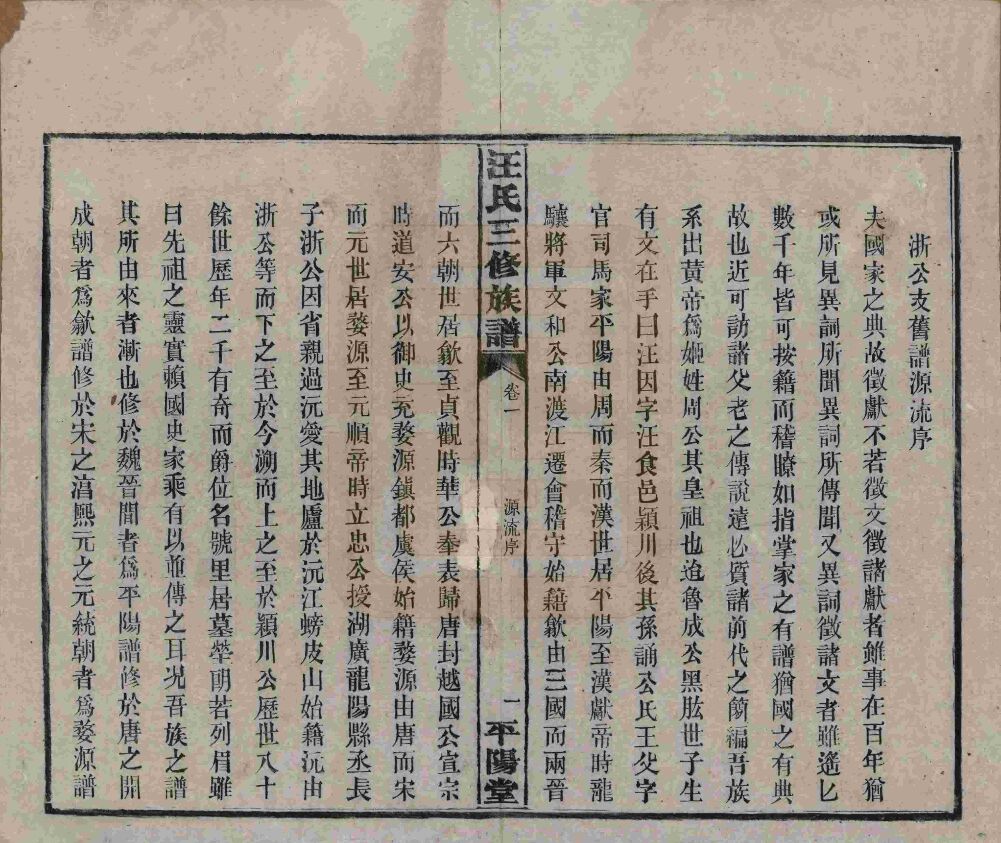 浙公支舊譜源流序
夫國家之典故徵獻不若徵文徵諸獻者雖事在百年猶
或所見異詞所聞異詞所傳聞又異詞徵諸文者雖遙乆
數千年皆可按籍而稽瞭如指掌家之有譜猶國之有典
故也近可訪諸父老之傳說遠必質諸前代之簡編吾族
系出黃帝爲姬姓周公其皇祖也迨魯成公黑肱世子生
有文在手曰汪因字汪食邑潁川後其孫誦公氏王父字
官司馬家平陽由周而秦而漢世居平陽至漢獻帝時龍
驤將軍文和公南渡江遷會稽守始籍歙由三國而兩晉
汪氏三修族譜
卷一
源流序
一
平陽堂
而六朝世居歙至貞觀時華公奉表歸唐封越國公宣宗
時道安公以御史充婺源鎮都虞侯始籍婺源由唐而宋
而元世居婺源至元順帝時立忠公授湖廣龍陽縣丞長
子浙公因省親過沅愛其地廬於沅江螃皮山始籍沅由
浙公等而下之至於今溯而上之至於潁川公歷世八十
餘世歷年二千有奇而爵位名號里居墓犖朙若列眉雖
曰先祖之靈實賴國史家乘有以並傳之耳況吾族之譜
其所由來者漸也修於魏晉間者爲平陽譜修於唐之開
成朝者爲歙譜修於宋之淳熙元之元統朝者爲婺源譜